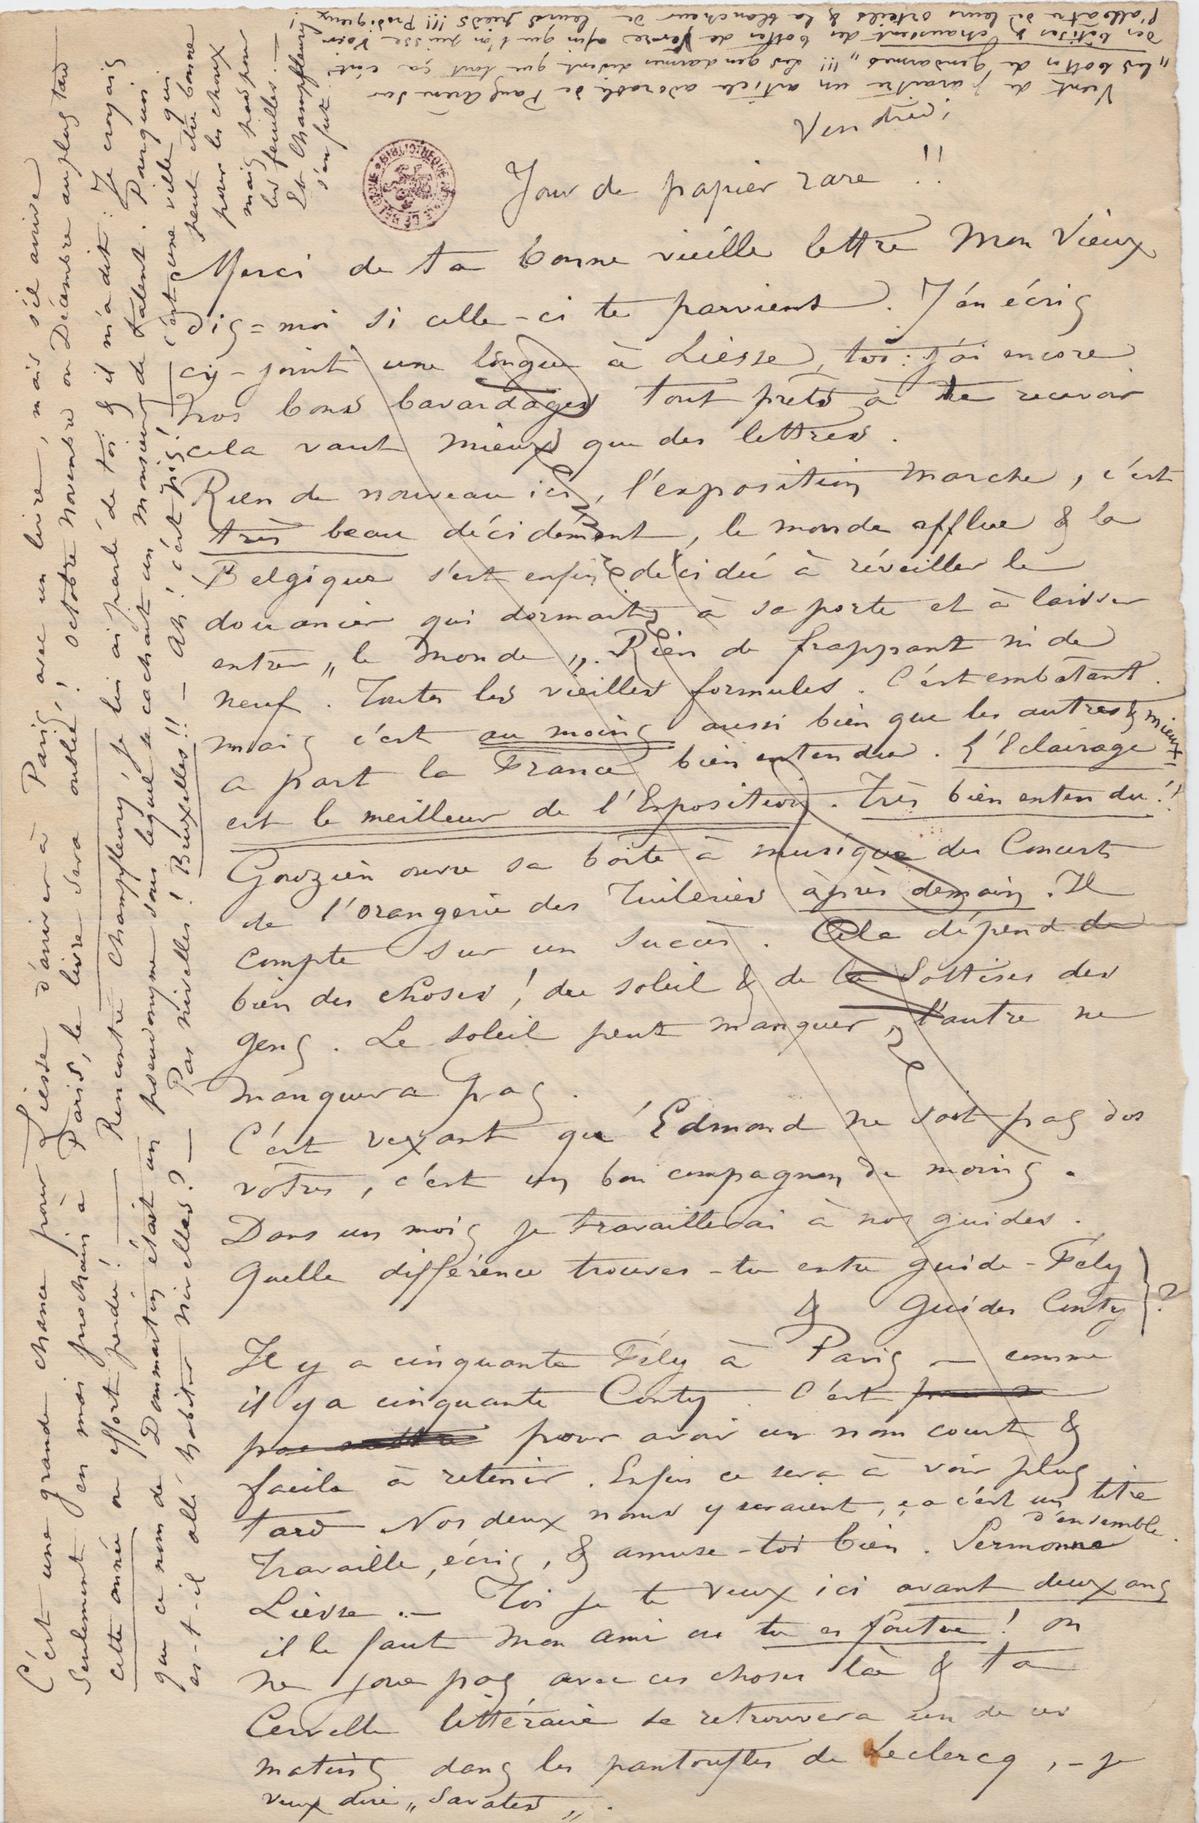 Vendredi
Jour de papier rare !!
Merci de ta bonne vieille lettre Mon Vieux
dis=moi si celle-ci te parvient. J'en écris
ci-joint une longue à Liesse, toi : j'ai encore
nos bons bavardages tout prêts à te recevoir
cela vaut mieux que des lettres.
Rien de nouveau ici, l'exposition marche, c'est
très beau décidément, le monde afflue & la
Belgique s'est enfin décidée à réveiller le
douanier qui dormait à sa porte et à laisser
entrer „le monde„. Rien de frappant ni de
neuf. Toutes les vieilles formules. C'est embêtant.
mais c'est au moins aussi bien que les autres & mieux,
a part la France bien entendu. L'Eclairage
est le meilleur de l'Exposition. Très bien entendu !!
Gouzien ouvre sa boîte à musique des Concerts
de l'orangerie des Tuileries après demain. Il
compte sur un succès. Cela dépend de
bien des choses ! du soleil & de la Sottises des
gens. Le soleil peut manquer, l'autre ne
manquera pas.
C'est vexant que Edmond ne soit pas des
vôtres, c'est un bon compagnon de moins.
Dans un mois je travaillerai à nos guides.
Quelle différence trouves-tu entre guide-Fély
& Guides Conty } ?
Il y a cinquante Fély à Paris — comme
il y a cinquante Conty. C'est
pour avoir un nom court &
facile à retenir. Enfin ce sera à voir plus
tard Nos deux noms y seraient, ça c'est un titre
d'ensemble.
Travaille, écris, & amuse-toi bien. Sermonne
Liesse. — Toi je te veux ici avant deux ans
il le faut mon ami ou tu es foutu ! on
ne joue pas avec ces choses là & ta
Cervelle littéraire se retrouvera un de ces
matins dans les pantoufles de Leclercq, - je
veux dire „Savates„.
C'est une grande chance pour Liesse d'arriver à Paris avec un livre, mais s'il arrive
seulement en mai prochain à Paris, le livre sera oublié, octobre novembre ou Décembre au plus tard
cette année ou effort perdu ! — Rencontré Champfleury, je lui ai parlé de toi & il m'a dit : Je croyais
que ce nom de Dommartin était un pseudonyme sous lequel se cachait un monsieur de talent. Pourquoi
est-il allé habiter Nivelles ? — Pas nivelles ! Bruxelles !! — Ah ! c'est pis ! c'est une ville qui
peut être bonne
pour les choux
mais pas pour
les feuilles. —
Et Champfleury
s'en fut.
Vient de paraître un article adorable de Paul Arène sur
„Les bottes de gendarmes„ !!! Les gendarmes disent que tout ça c'est
des bêtises & chaussent des bottes de verre afin que l'on puisse voir
l'albâtre de leurs orteils & la blancheur de leurs pieds !!! Prodigieux !